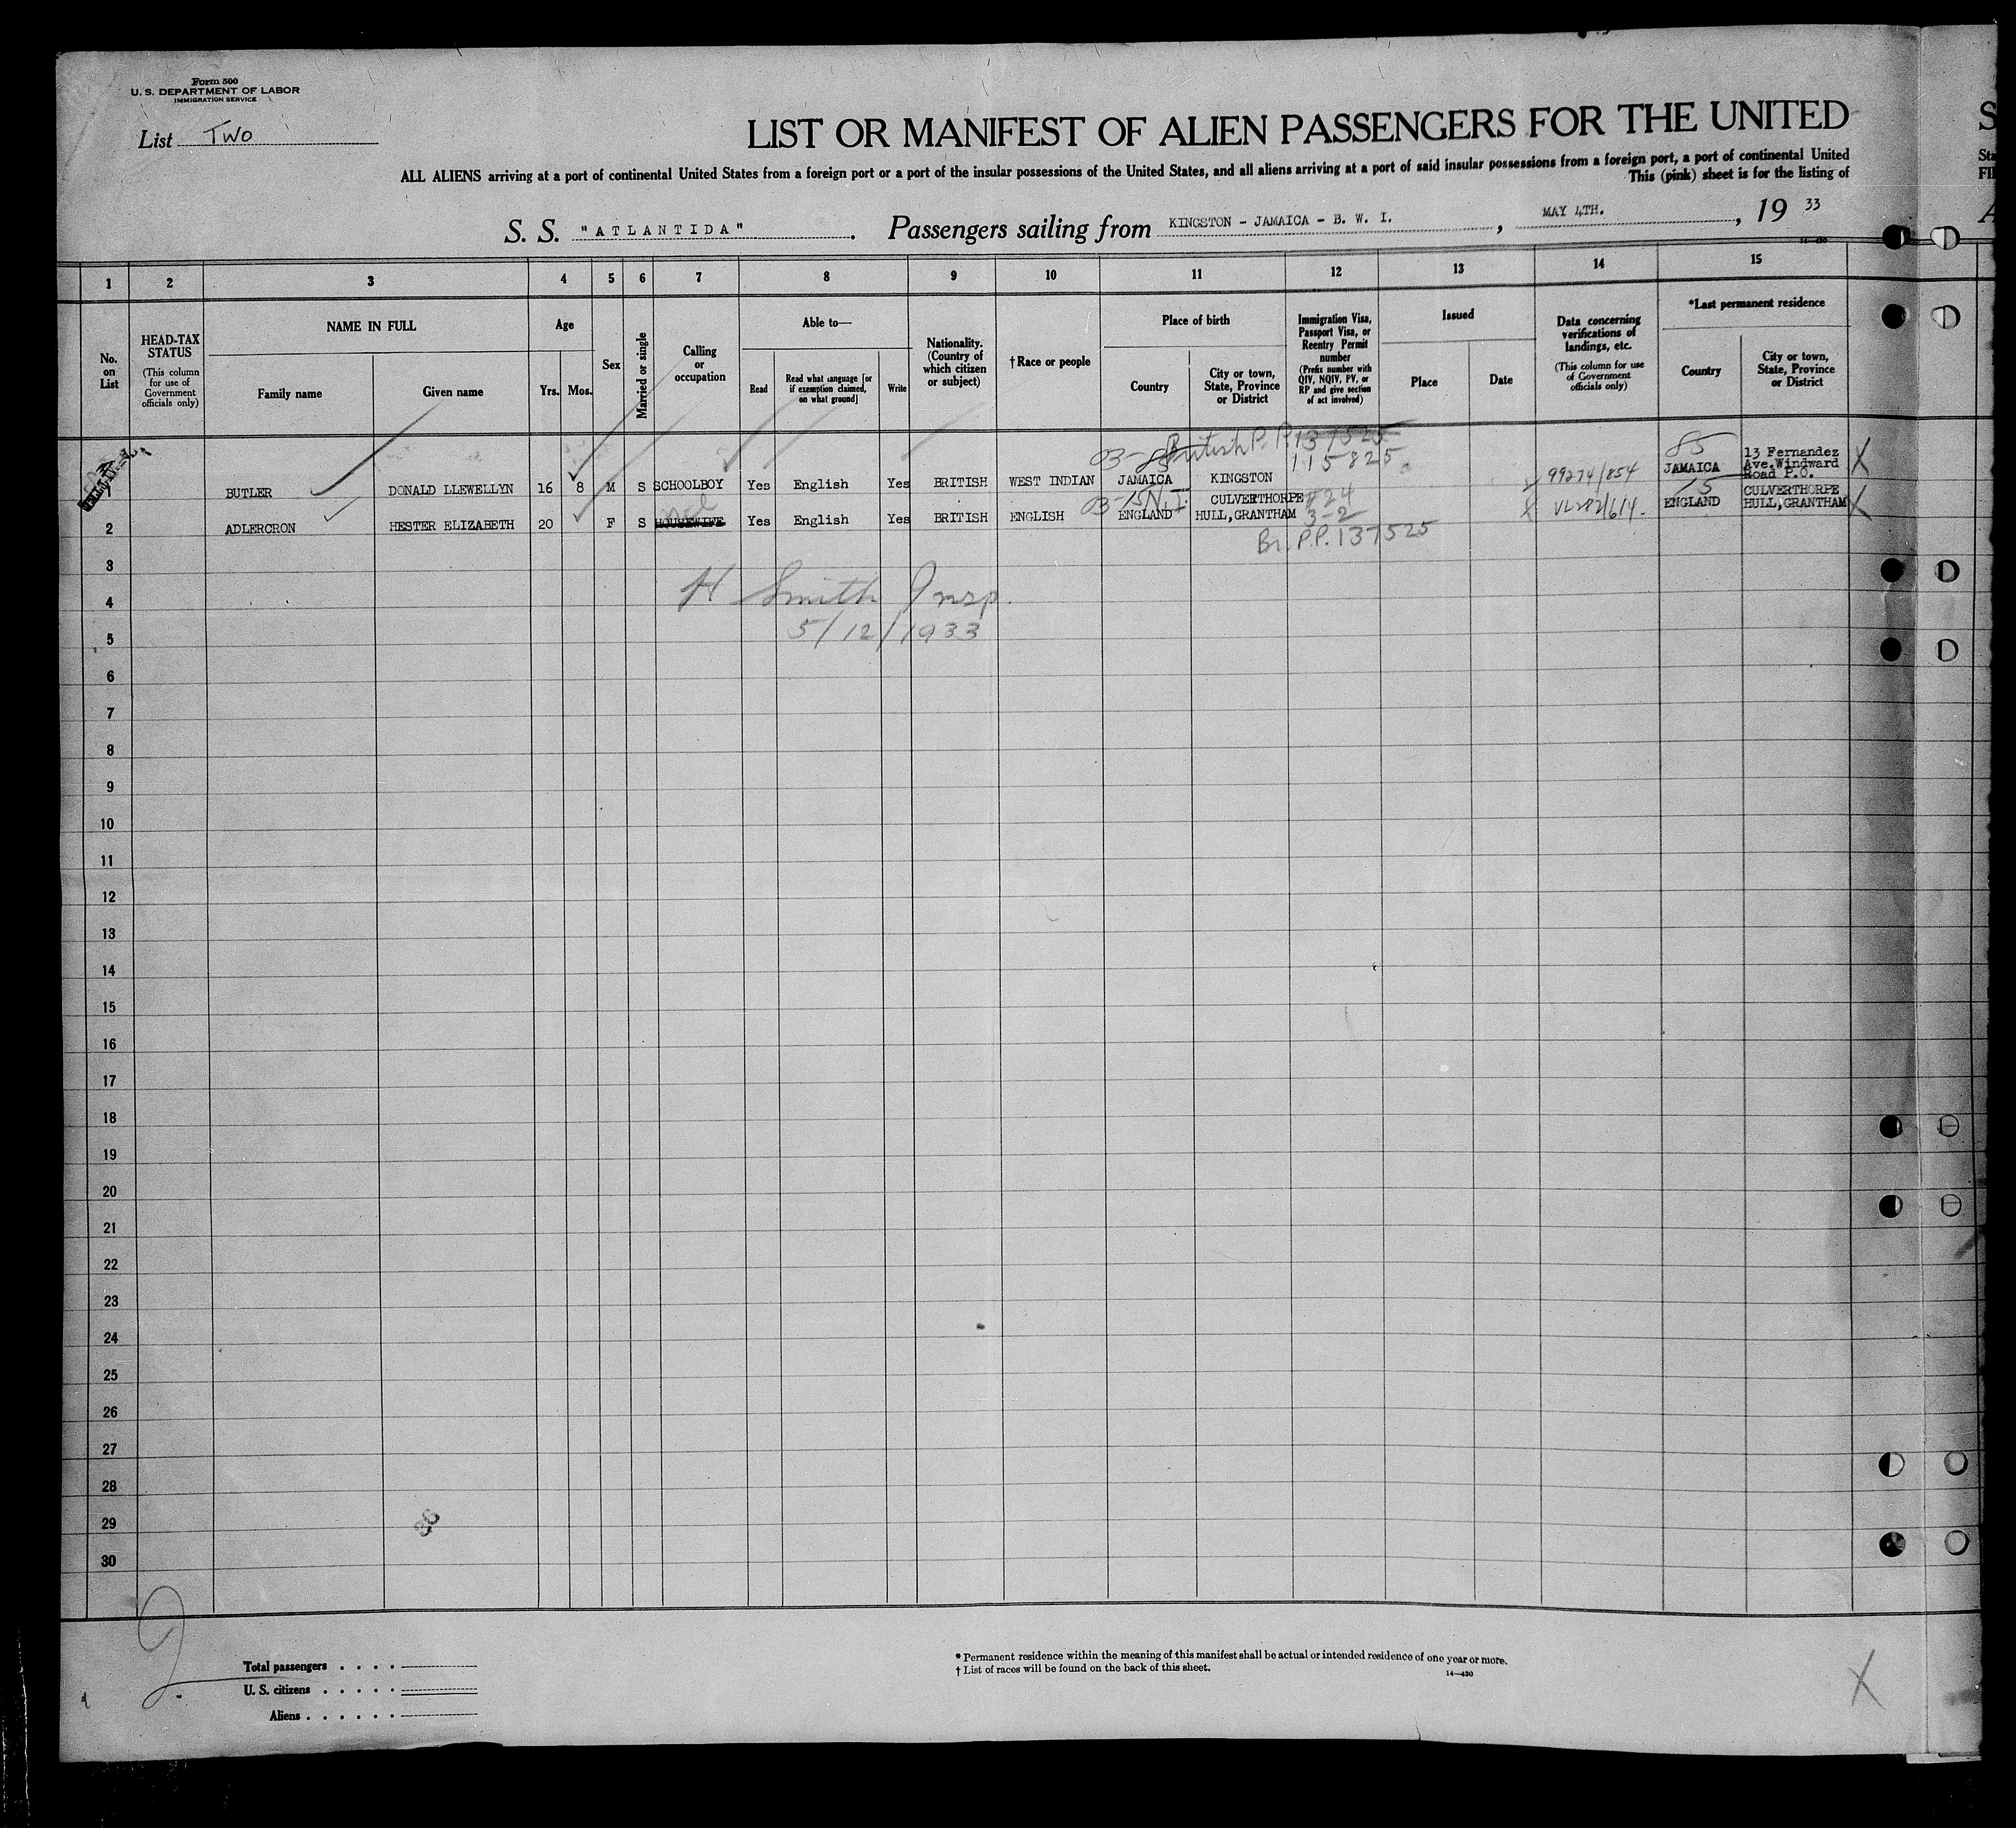 Form 500
U. S. DEPARTMENT OF LABOR
IMMIGRATION SERVICE
List Two
LIST OR MANIFEST OF ALIEN PASSENGERS FOR THE UNITED
ALL ALIENS arriving at a port of continental United States from a foreign port or a port of the insular possessions of the United States, and all aliens arriving at a port of said insular possessions from a foreign port, a port of continental United
This (pink) sheet is for the listing of
S. S. "ATLANTIDA". Passengers sailing from KINGSTON - JAMAICA - B. W. I., MAY 4TH., 19 33
1 2 3 4 5 6 7 8 9 10 11 12 13 14 15
No. on List
HEAD-TAX STATUS
(This column for use of Government officials only)
NAME IN FULL
Family name
Given name
Age
Yrs. Mos.
Sex
Married or single
Calling or occupation
Able to—
Read
Read what language [or if exemption claimed, on what ground]
Write
Nationality. (Country of which citizen or subject)
†Race or people
Place of birth
Country
City or town, State, Province or District
Immigration Visa, Passport Visa, or Reentry Permit number
(Prefix number with QIV, NQIV, PV, or RP and give section of act involved)
Issued
Place
Date
Data concerning verifications of landings, etc.
(This column for use of Government officials only)
*Last permanent residence
Country
City or town, State, Province or District
British P. P. 137525
03-85
115825
85
1 BUTLER DONALD LLEWELLYN 16 8 M S SCHOOLBOY Yes English Yes BRITISH WEST INDIAN JAMAICA KINGSTON 99274/854 JAMAICA 13 Fernandez Ave.Windward Road P.O.
03-15
#24
3-2
15
2 ADLERCRON HESTER ELIZABETH 20 F S HOUSEWIFE Yes English Yes BRITISH ENGLISH ENGLAND CULVERTHORPE HULL,GRANTHAM VL282/614 ENGLAND CULVERTHORPE HULL,GRANTHAM
Br. P.P. 137525
3
H Smith Insp.
4
5/12/1933
5
6
7
8
9
10
11
12
13
14
15
16
17
18
19
20
21
22
23
24
25
26
27
28
29
36
30
2
Total passengers . . . .
U. S. citizens . . . . .
Aliens . . . . . .
* Permanent residence within the meaning of this manifest shall be actual or intended residence of one year or more.
† List of races will be found on the back of this sheet.
14—430
X